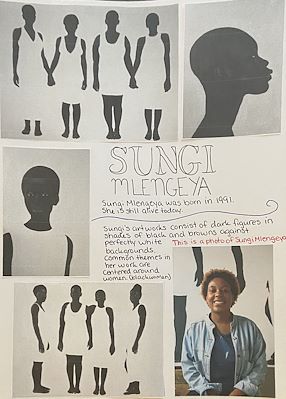 SUNGI
MLENGEYA
Sungi Mlengeya was born in 1991.
She is still alive today.
Sungi's artworks consist of dark figures in
shades of black and browns against
perfectly white
backgrounds.
This is a photo of Sungi Mlengeya
Common themes in
her work are
centered around
women. (black women)